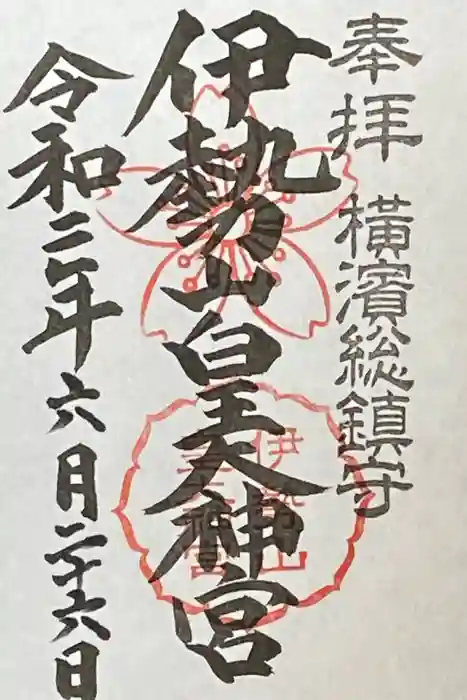 奉拝 横濱総鎮守
伊勢山皇大神宮
令和二年六月二十六日
伊勢山
皇大神宮